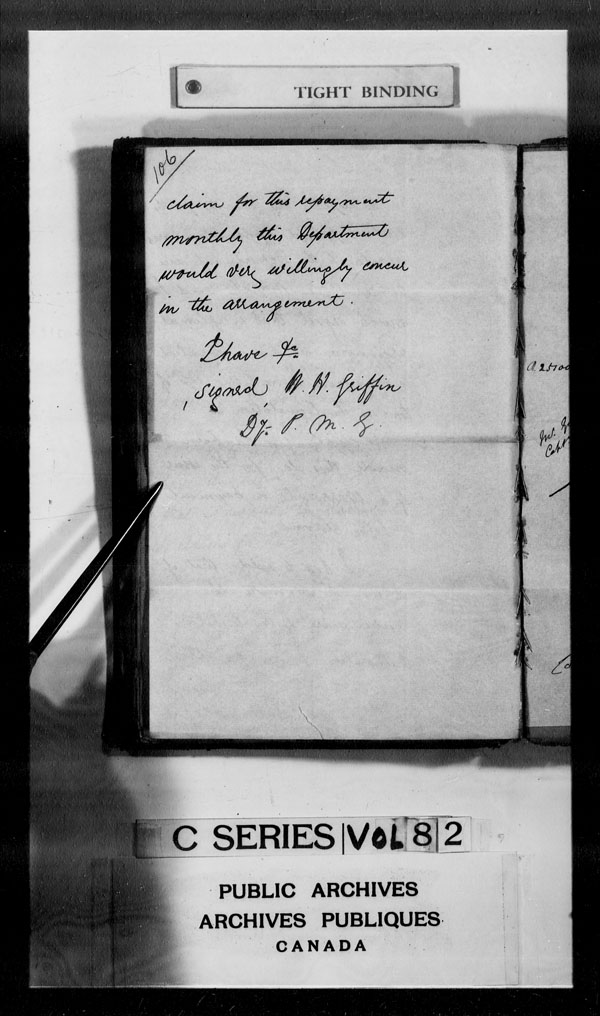 TIGHT BINDING
106
claim for this repayment
monthly this Department
would very willingly concur
in the arrangement.
I have &c
signed W. H. Griffin
Dy. P. M. G.
C SERIES VOL 82
PUBLIC ARCHIVES
ARCHIVES PUBLIQUES
CANADA